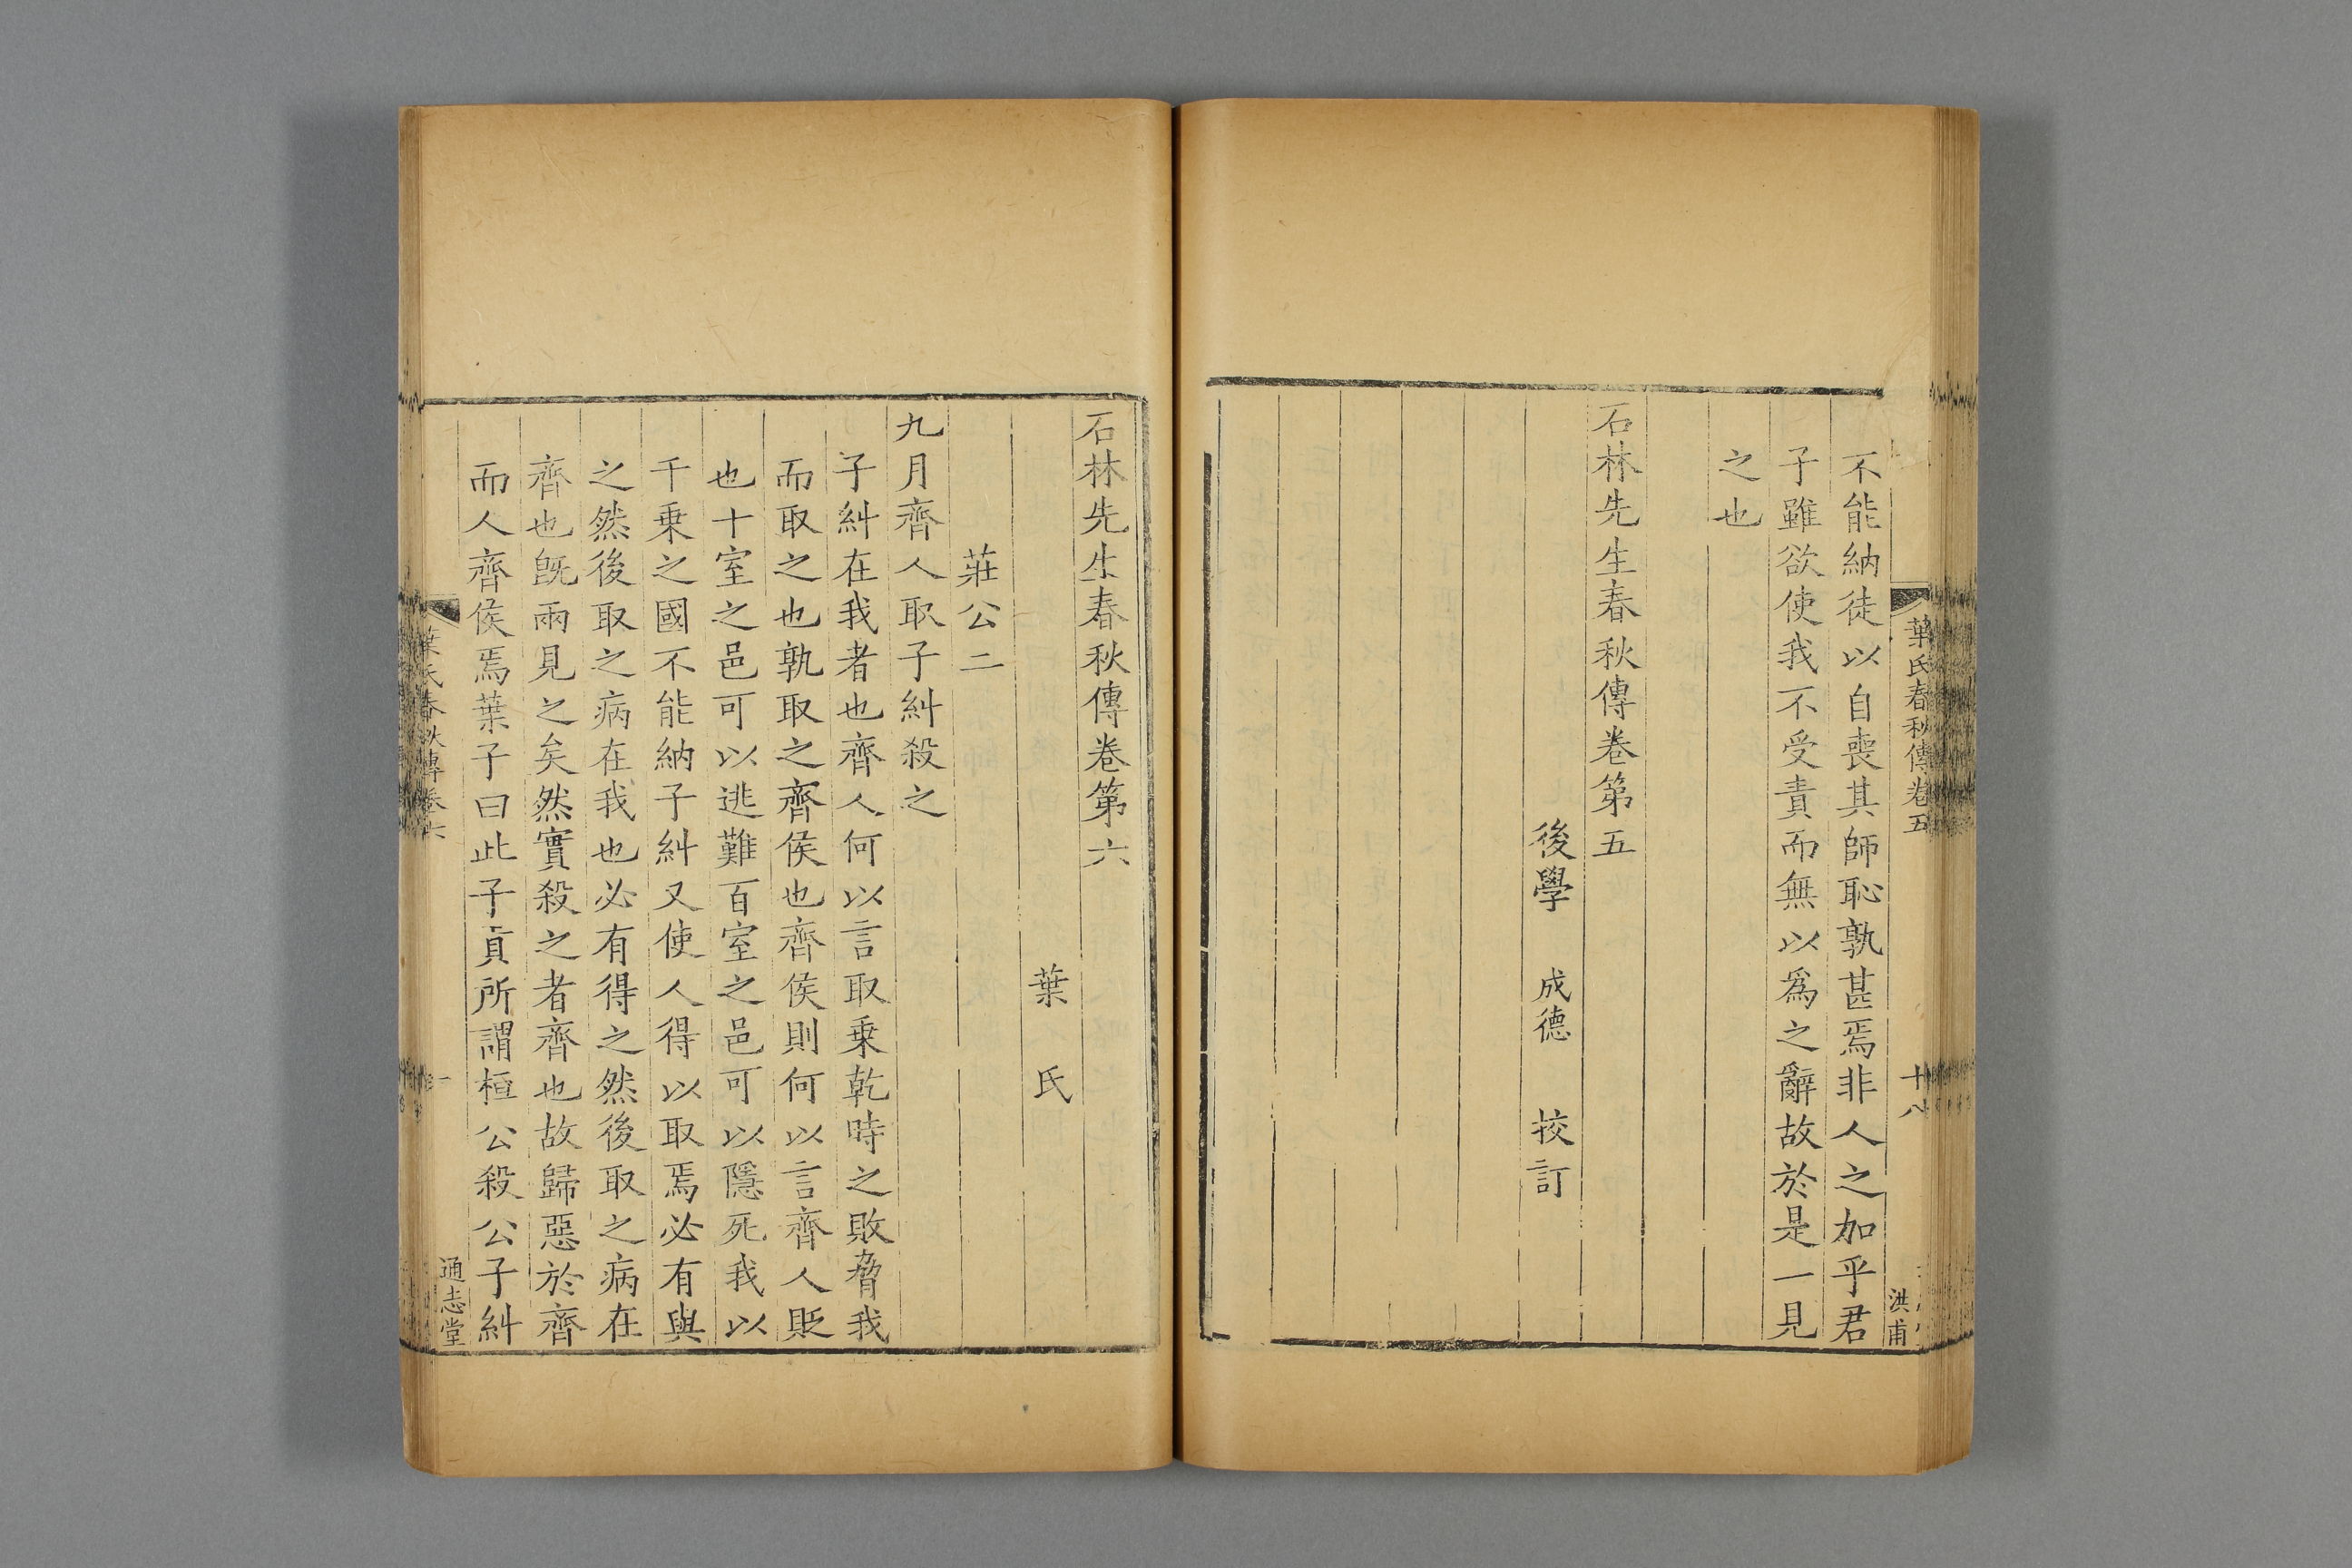 葉氏春秋傳卷五
十八
洪甫
不能納徒以自喪其師恥孰甚焉非人之加乎君
子雖欲使我不受責而無以爲之辭故於是一見
之也
石林先生春秋傳卷第五
後學 成德 挍訂
石林先生春秋傳卷第六
葉氏
莊公二
九月齊人取子糾殺之
子糾在我者也齊人何以言取乗乾時之敗脅我
而取之也孰取之齊侯也齊侯則何以言齊人貶
也十室之邑可以逃難百室之邑可以隱死我以
千乗之國不能納子糾又使人得以取焉必有與
之然後取之病在我也必有得之然後取之病在
齊也旣兩見之矣然實殺之者齊也故歸惡於齊
而人齊侯焉葉子曰此子貢所謂桓公殺公子糾
葉氏春秋傳卷六
一
通志堂